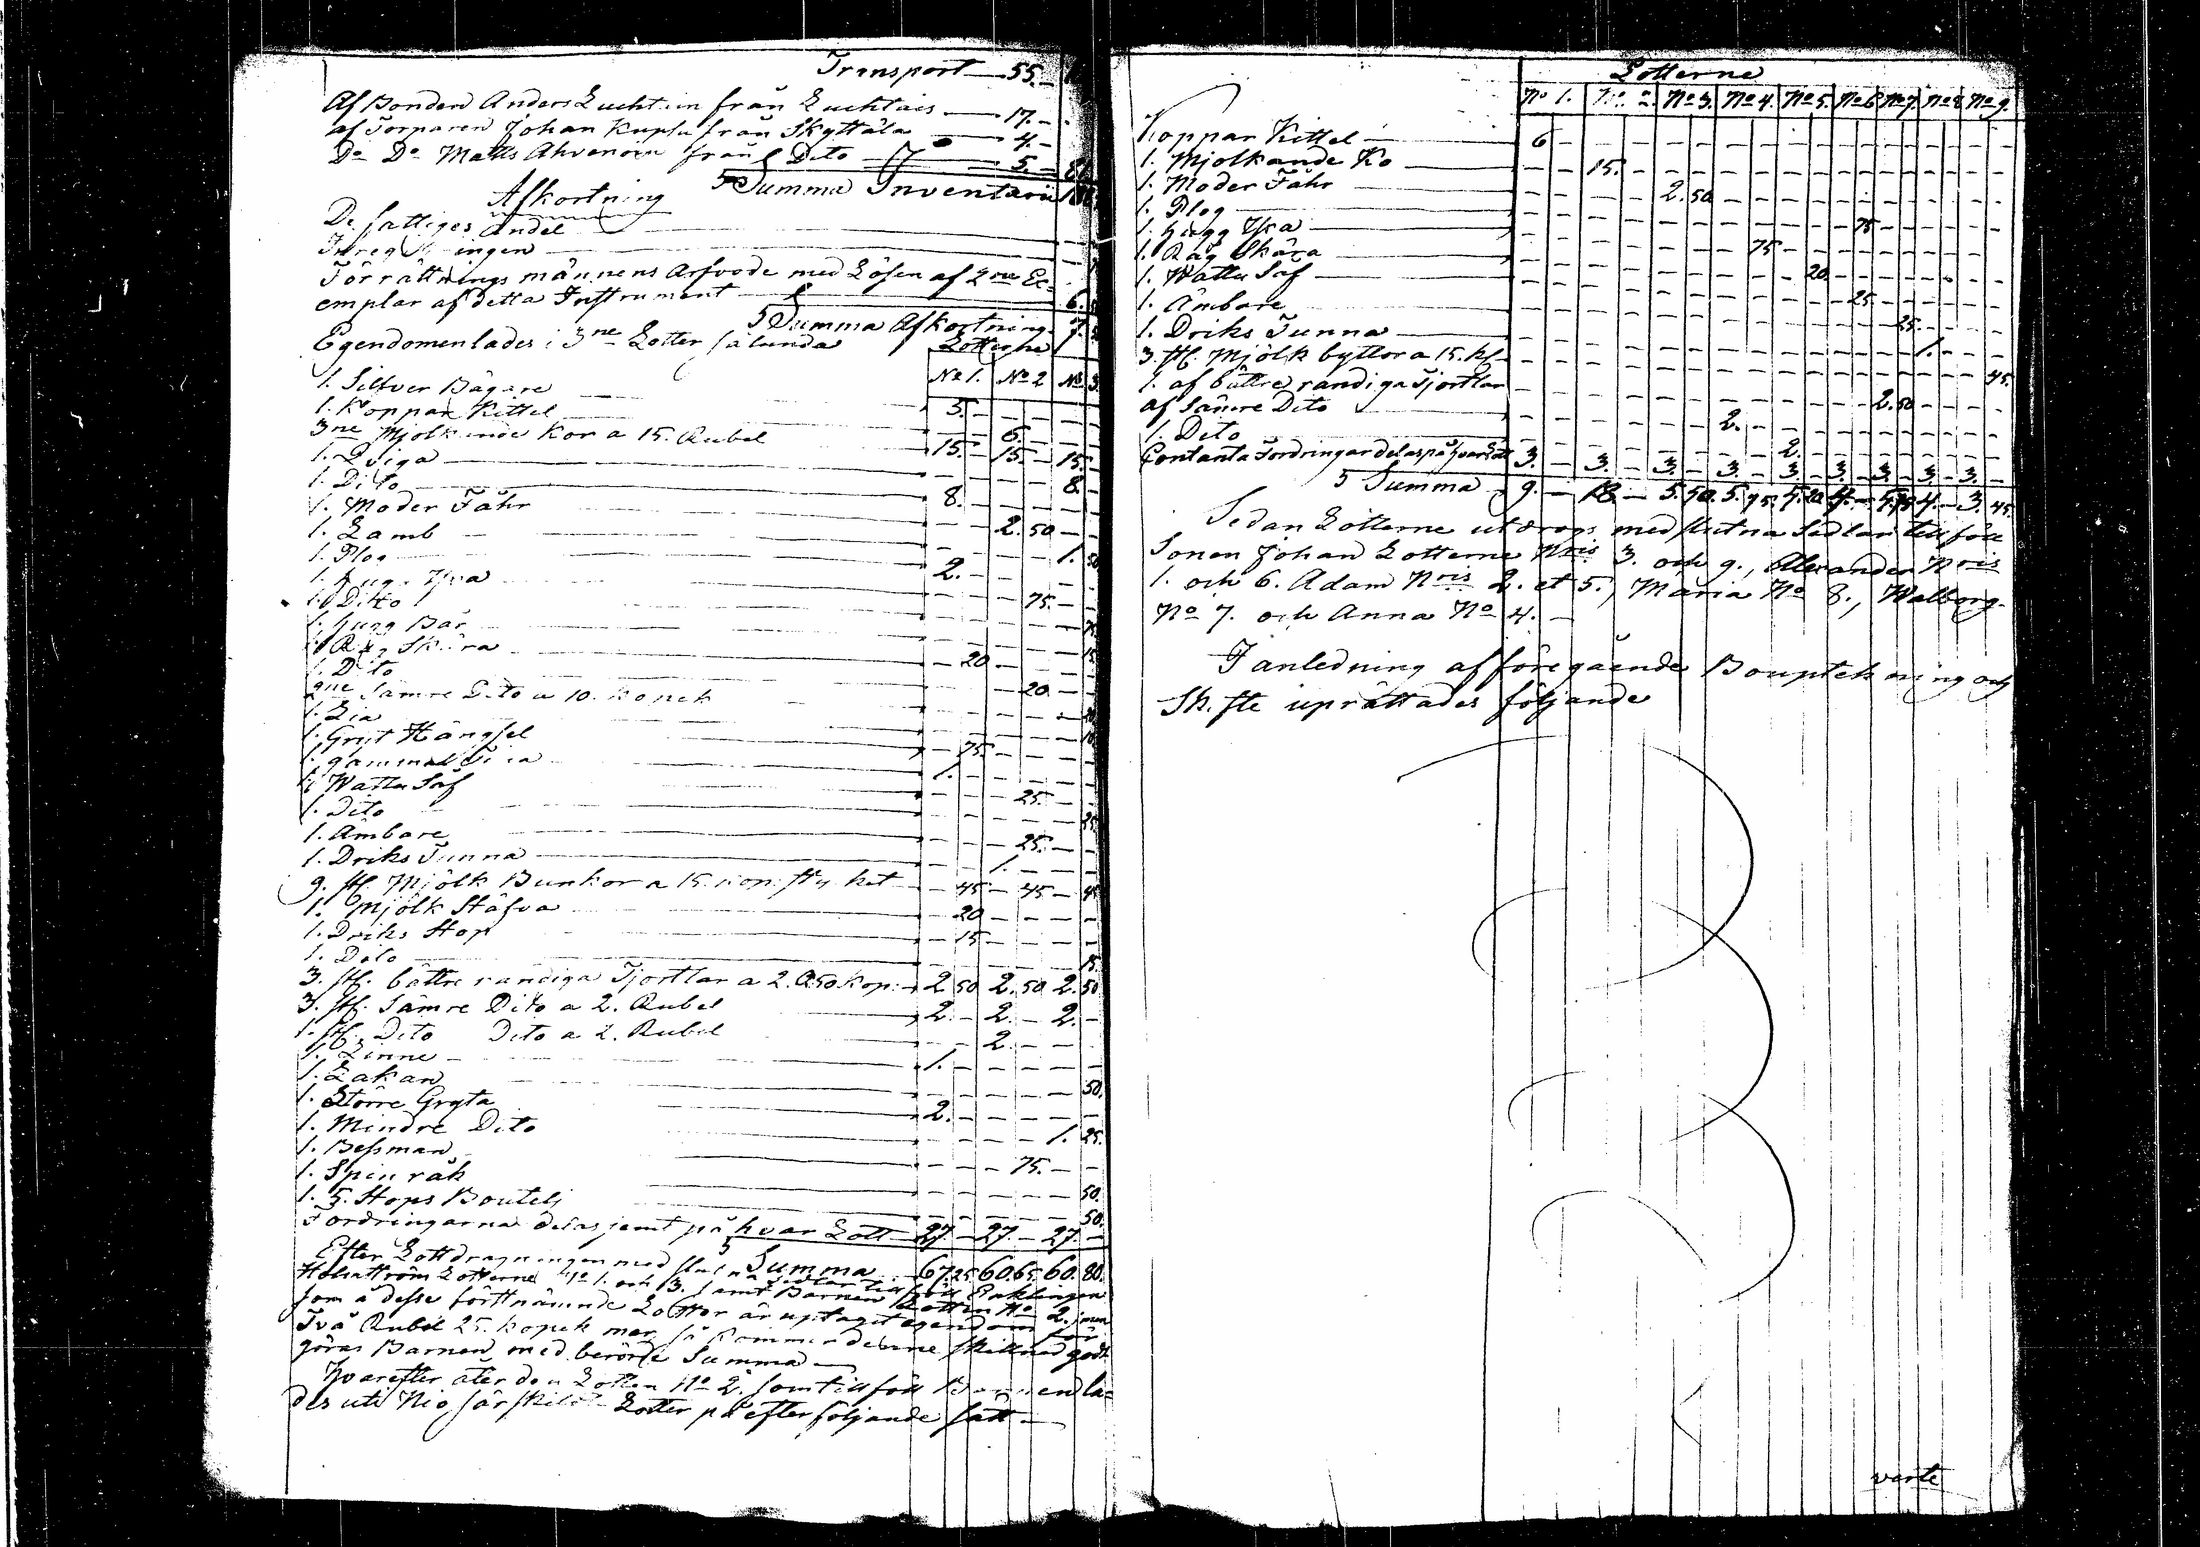 Transport — 55. —
Af Bonden Anders Luchtain från Luchtais — 17. —
af Torparen Johan Kupsu från Skyttälä — 4. —
Do Do Matts Ahvenoin från Dito — 5. —
Summa Inventarii
Afkortning
De fattiges Andel
Förrättnings männens Arfvode med Lösen af 2ne Ex-
emplar af detta Instrument — 6.
Summa Afkortning 7.
Egendomen lades i 3ne Lotter sålunda Lotterne
No 1. No 2 No 3
1. Silfver Bägare 5. —
1. Koppar Kittel — 6. —
3ne Mjölkande Kor a 15. Rubel 15. — 15. — 15. —
1. Qviga — 8. —
1. Dito 8. —
1. Moder Fåhr — 2. 50 —
1. Lamb — 1. 50
1. Plog 2. —
1. Hugg Yxa — 75. —
1. Dito — 75
1. Hugg Bår — 15
1. Råg Skära — 20 —
1. Dito — 20. —
2ne Sämre Dito a 10. Kopek — 20
1. Lia — 10
1. Gryt Hängsel — 75. —
1. gammal 1. —
1. Wattu Såf — 25. —
1. Dito — 25
1. Ämbare — 25. —
1. Driks Tunna — 1. —
9. st. Mjölk Bunkor a 15. kop: stycket — 45 — 45 — 45
1. Mjölk Stäfva — 20 —
1. Driks Stop — 15 —
1. Dito — 15
3. st. bättre randiga Tjortlar a 2. R 50 kop: 2 50 2. 50 2. 50
3. st. Sämre Dito a 2. Rubel 2. — 2. — 2. —
1. st. Dito Dito a 2. Rubel — 2. —
1. Linne 1. —
1. Lakan — 50.
1. Större Gryta 2. —
1. Mindre Dito — 1. 25.
1. Bessman — 75. —
1. Spin råk — 50.
1. 5. Stops Boutelj — 50.
Fordringarna delas jemt på hvar Lott 27. — 27. — 27. —
Summa 67. 25 60. 65 60. 80.
Efter Lottdragningen med slutna Sedlar tillföll Enklingen
Holmström Lotterne No 1. och 3. samt Barnen Lotten No 2. men
som å desse förstnämnde Lotter är uptaget egendom för
Två Rubel 25. kopek mer så kommer denne skillnad godt
göras Barnen med berörde Summa —
Hvarefter åter den Lotten No 2. som tillföll Barnen la-
des uti Nio särskilda Lotter på efterföljande sätt —
Lotterne
No 1. No 2. No 3. No 4. No 5. No 6 No 7. No 8. No 9.
1. Koppar Kittel 6 —
1. Mjölkande Ko — 15. —
1. Moder Fåhr — 2. 50
1. Plog
1. Hugg Yxa — 75 —
1. Råg Skära — 75 —
1. Wattu Såf — 20. —
1. Ämbare — 25. —
1. Driks Tunna — 25. —
3. st. Mjölk byttor a 15. k — 1. —
1. af bättre randiga Tjortlar — 45.
af Sämre Dito — 2. 50 —
1. Dito — 2. —
— 2. —
Contanta Fordringar delas på hvar lott 3. — 3. — 3. — 3. — 3. — 3. — 3. — 3. — 3. —
Summa 9. — 18. — 5. 50. 5. 75. 5. 20 4. — 5. 75 4. — 3. 45.
Sedan Lotterne utdrogs med slutna Sedlar tillföll
Sonen Johan Lotterne Nris 3. och 9., Alexander Nris
1. och 6. Adam Nris 2. et 5., Maria No 8., Walborg
No 7. och Anna No 4. —
I anledning af föregående Bouptekning och
Skifte uprättades följande
verte